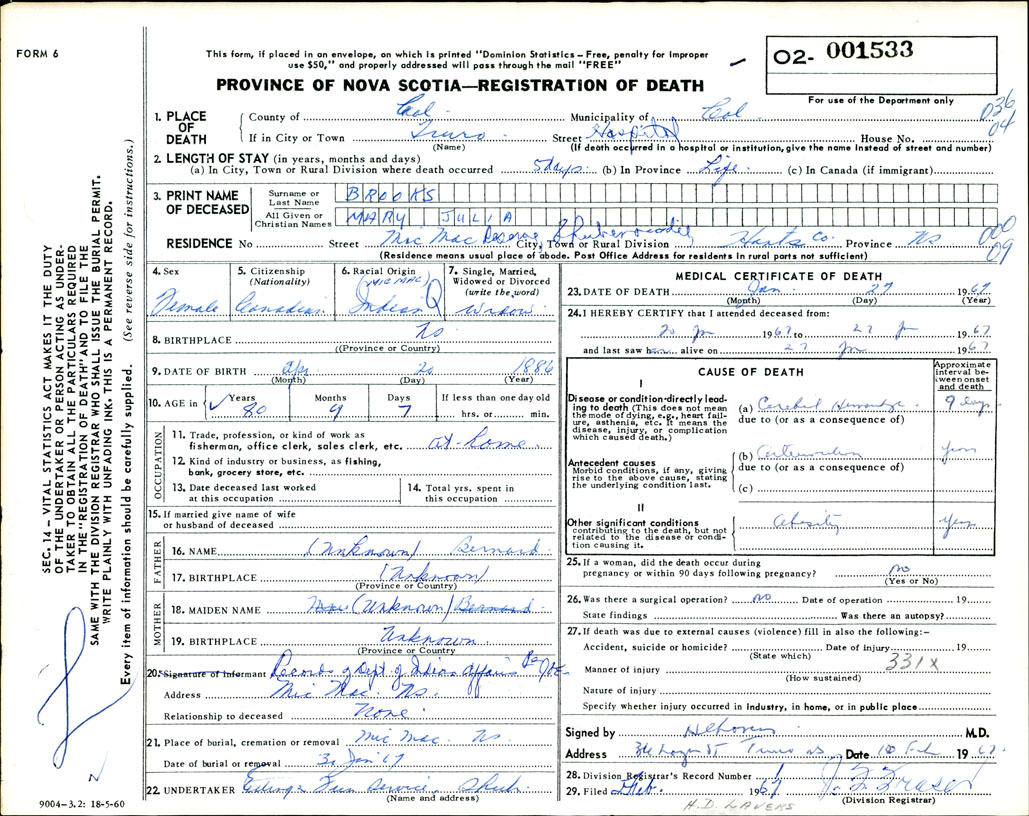 FORM 6
This form, if placed in an envelope, on which is printed "Dominion Statistics – Free, penalty for improper
use $50," and properly addressed will pass through the mail "FREE"
PROVINCE OF NOVA SCOTIA—REGISTRATION OF DEATH
O2- 001533
For use of the Department only
036
04
1. PLACE OF DEATH
County of Col. Municipality of Col.
If in City or Town Truro Street Hospital House No.
(Name) (If death occurred in a hospital or institution, give the name instead of street and number)
2. LENGTH OF STAY (in years, months and days)
(a) In City, Town or Rural Division where death occurred 5 days (b) In Province Life (c) In Canada (if immigrant)
3. PRINT NAME OF DECEASED
Surname or Last Name BROOKS
All Given or Christian Names MARY JULIA
RESIDENCE No Street Mic Mac Reserve Shubenacadie City, Town or Rural Division Hants Co. Province NS
000
09
(Residence means usual place of abode. Post Office Address for residents in rural parts not sufficient)
4. Sex Female
5. Citizenship (Nationality) Canadian
6. Racial Origin (MIC MAC) Indian
7. Single, Married, Widowed or Divorced (write the word) Widow
8. BIRTHPLACE NS
((Province or Country)
9. DATE OF BIRTH Apr 20 1886
(Month) (Day) (Year)
10. AGE in Years 80 Months 9 Days 7 If less than one day old hrs. or min.
OCCUPATION
11. Trade, profession, or kind of work as fisherman, office clerk, sales clerk, etc. at home
12. Kind of industry or business, as fishing, bank, grocery store, etc.
13. Date deceased last worked at this occupation
14. Total yrs. spent in this occupation
15. If married give name of wife or husband of deceased
FATHER
16. NAME (Unknown) Bernard
17. BIRTHPLACE (Unknown)
(Province or Country)
MOTHER
18. MAIDEN NAME (Unknown) Bernard
19. BIRTHPLACE Unknown
(Province or Country
20. Signature of informant Records of Dept. of Indian Affairs
Address Mic Mac. NS.
Relationship to deceased None
21. Place of burial, cremation or removal Mic Mac. NS.
Date of burial or removal 30 Jan 67
22. UNDERTAKER Fun Service Shub.
(Name and address)
9004–3.2: 18-5-60
MEDICAL CERTIFICATE OF DEATH
23. DATE OF DEATH Jan. 27 1967
(Month) (Day) (Year)
24. I HEREBY CERTIFY that I attended deceased from:
20 Jan 1967 to 27 Jan 1967
and last saw h alive on 27 Jan 1967
CAUSE OF DEATH
Approximate interval between onset and death
I
Disease or condition directly leading to death (This does not mean the mode of dying, e.g., heart failure, asthenia, etc. It means the disease, injury, or complication which caused death.)
(a) Cerebral Hemorrhage 9 days
due to (or as a consequence of)
Antecedent causes
Morbid conditions, if any, giving rise to the above cause, stating the underlying condition last.
(b) years
due to (or as a consequence of)
(c)
II
Other significant conditions contributing to the death, but not related to the disease or condition causing it.
Obesity years
25. If a woman, did the death occur during pregnancy or within 90 days following pregnancy? no
(Yes or No)
26. Was there a surgical operation? no Date of operation 19
State findings Was there an autopsy?
27. If death was due to external causes (violence) fill in also the following:–
Accident, suicide or homicide? Date of injury 19
(State which)
331X
Manner of injury
(How sustained)
Nature of injury
Specify whether injury occurred in industry, in home, or in public place
Signed by M.D.
Address Truro NS Date 10 Feb 1967
28. Division Registrar's Record Number 1
29. Filed Feb. 1967 Fraser
(Division Registrar)
H.D. LAVERS
SEC. 14 – VITAL STATISTICS ACT MAKES IT THE DUTY
OF THE UNDERTAKER OR PERSON ACTING AS UNDER-
TAKER TO OBTAIN ALL THE PARTICULARS REQUIRED
IN THE "REGISTRATION OF DEATH" AND TO FILE THE
SAME WITH THE DIVISION REGISTRAR WHO SHALL ISSUE THE BURIAL PERMIT.
WRITE PLAINLY WITH UNFADING INK. THIS IS A PERMANENT RECORD.
Every item of information should be carefully supplied. (See reverse side for instructions.)